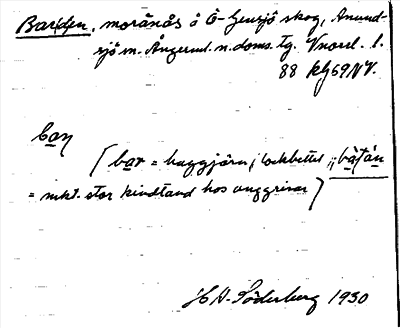 Barden, moränås å Ö-Gensjö skog, Anund-
sjö sn. Ångerml. n. doms. tg. Vnorrl. l.
88 kbg 59 NV.
ban
[bar = huggjärn, i lockbettet
= mkt. stor kindtand hos unggrisar]
H H-Söderberg 1930